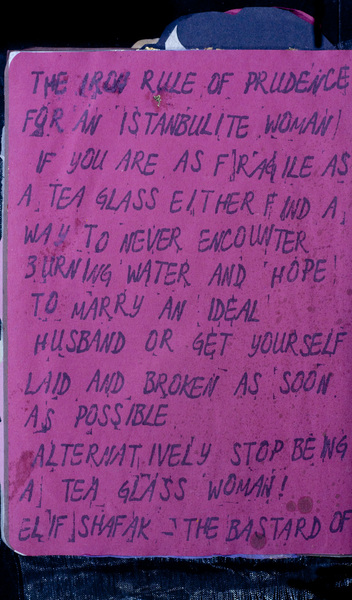 THE IRON RULE OF PRUDENCE
FOR AN ISTANBULITE WOMAN!
IF YOU ARE AS FRAGILE AS
A TEA GLASS EITHER FIND A
WAY TO NEVER ENCOUNTER
BURNING WATER AND HOPE
TO MARRY AN IDEAL
HUSBAND OR GET YOURSELF
LAID AND BROKEN AS SOON
AS POSSIBLE
ALTERNATIVELY STOP BEING
A TEA GLASS WOMAN!
ELIF SHAFAK - THE BASTARD OF